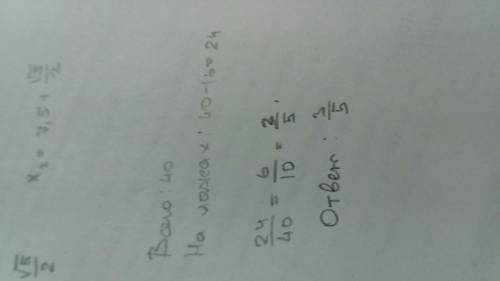 √5/2
x₂ = 7,5 + √5/2
Всего: 40
На лыжах: 40-16=24
24/40 = 6/10 = 3/5.
Ответ: 3/5